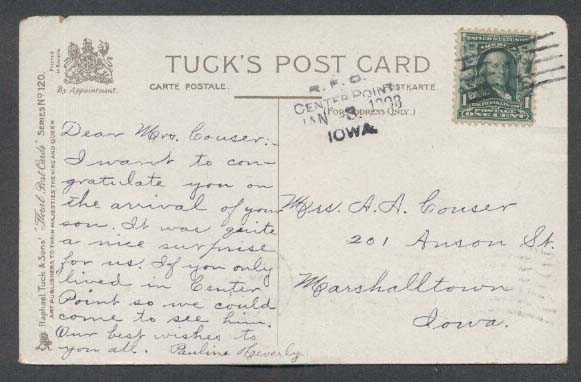 Printed
in Bavaria
By Appointment.
TUCK'S POST CARD
CARTE POSTALE.
POSTKARTE.
(FOR ADDRESS ONLY.)
R.F.D.
CENTER POINT
JAN 3 1908
IOWA
UNITED STATES
1
POSTAGE
ONE CENT
Raphael Tuck & Sons' "Floral Post Cards" SERIES No 120.
ART PUBLISHERS TO THEIR MAJESTIES THE KING AND QUEEN
Dear Mrs. Couser:-
I want to con-
gratulate you on
the arrival of your
son. It was quite
a nice surprise
for us. If you only
lived in Center
Point so we could
come to see him.
Our best wishes to
you all. Pauline Heverly
Mrs. A. A. Couser
201 Anson St.
Marshalltown
Iowa.